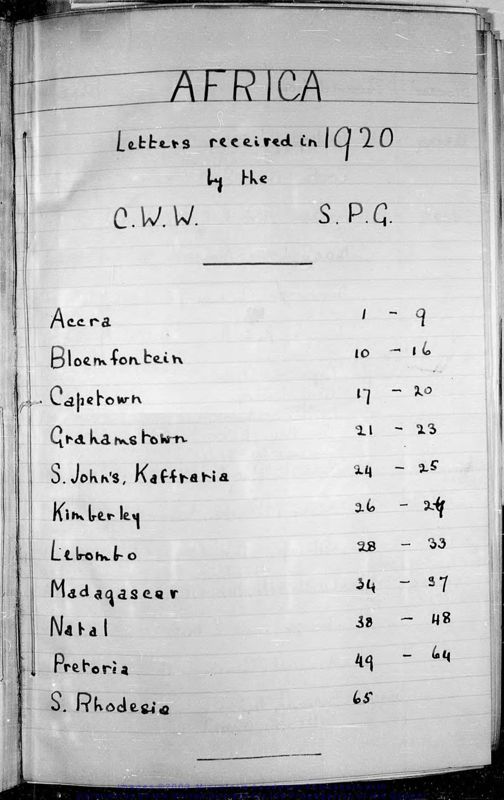 AFRICA
Letters received in 1920
by the
C.W.W. S.P.G.
Accra 1 - 9
Bloemfontein 10 - 16
Capetown 17 - 20
Grahamstown 21 - 23
S. John's, Kaffraria 24 - 25
Kimberley 26 - 27
Lebombo 28 - 33
Madagascar 34 - 37
Natal 38 - 48
Pretoria 49 - 64
S. Rhodesia 65